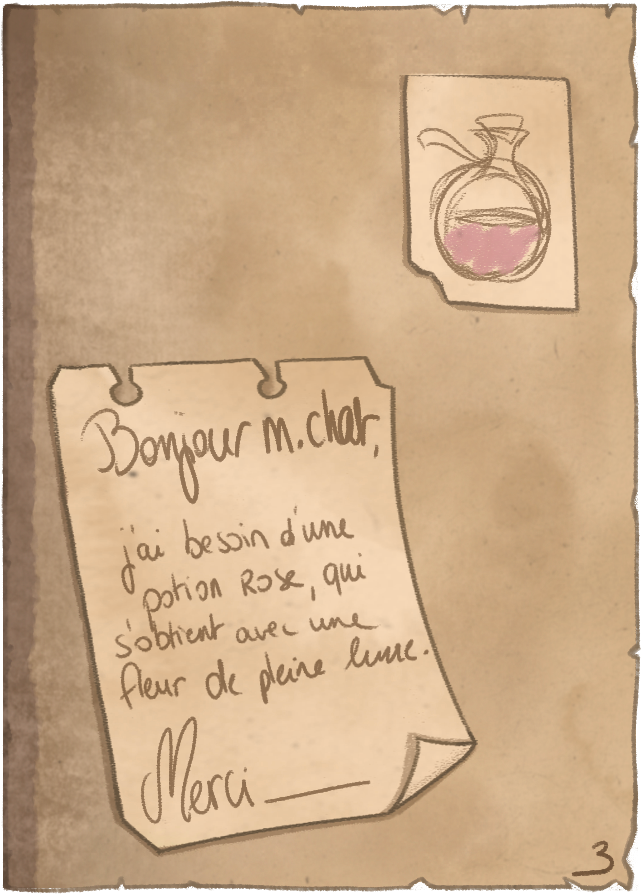 Bonjour m. chat,
j'ai besoin d'une
potion Rose, qui
s'obtient avec une
fleur de pleine lune.
Merci
3